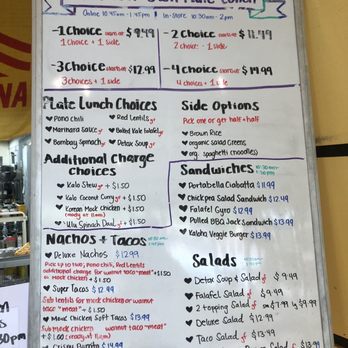 Plate Lunch
Online 10:45am - 1:45pm | In-Store 10:30am - 2pm
-1 Choice starts at $9.49
1 choice + 1 side
-2 Choice starts at $11.49
2 choice + 1 side
-3 Choice starts at $12.99
3 choices + 1 side
-4 Choice starts at $14.99
4 choices + 1 side
Plate Lunch Choices
♥ Pono Chili
♥ Red Lentils gf
♥ Marinara Sauce gf
♥ Baked Kale
♥ Bombay Spinach gf
♥ Detox Soup gf
Side Options
Pick one or get half + half
♥ Brown Rice
♥ organic salad Greens
♥ org. spaghetti (noodles)
Additional Charge
Choices
♥ Kalo Stew gf + $1.50
♥ Kalo Coconut Curry gf + $1.50
♥ Korean Mock chicken + $1.50
(ready at 11am)
♥ Ulu Spinach Daal gf + $1.50
Sandwiches
♥ Portabella Ciabatta $11.99
♥ Chickpea Salad Sandwich $12.49
♥ Falafel Gyro $12.99
♥ Pulled BBQ Jack Sandwich $13.99
♥ Kaloha Veggie Burger $13.99
Nachos + Tacos
♥ Deluxe Nachos $12.99
Pick up to two, Pono chili, Red Lentils
additional charge for walnut taco "meat" +$1.50
♥ Super Tacos $12.99
Sub lentils for mock chicken or walnut
taco "meat" + $1.50
♥ Mock Chicken Soft Tacos $13.99
Sub mock chicken walnut taco "meat"
+ $1.00 (ready at 11am)
♥ Crispy Burrito $14.99
Salads
♥ Detox Soup & Salad gf $9.49
♥ Falafel Salad gf $9.49
♥ 2 topping Salad gf sm $7.49 lg $9.99
♥ Deluxe Salad $12.99
♥ Taco Salad